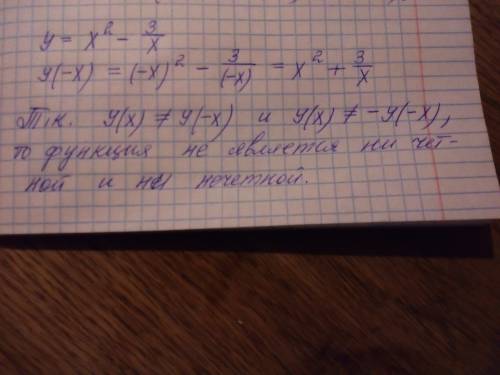 y = x² - 3/x
y(-x) = (-x)² - 3/(-x) = x² + 3/x
Т.к. y(x) ≠ y(-x) и y(x) ≠ -y(-x),
то функция не является ни чет-
ной и ни нечетной.